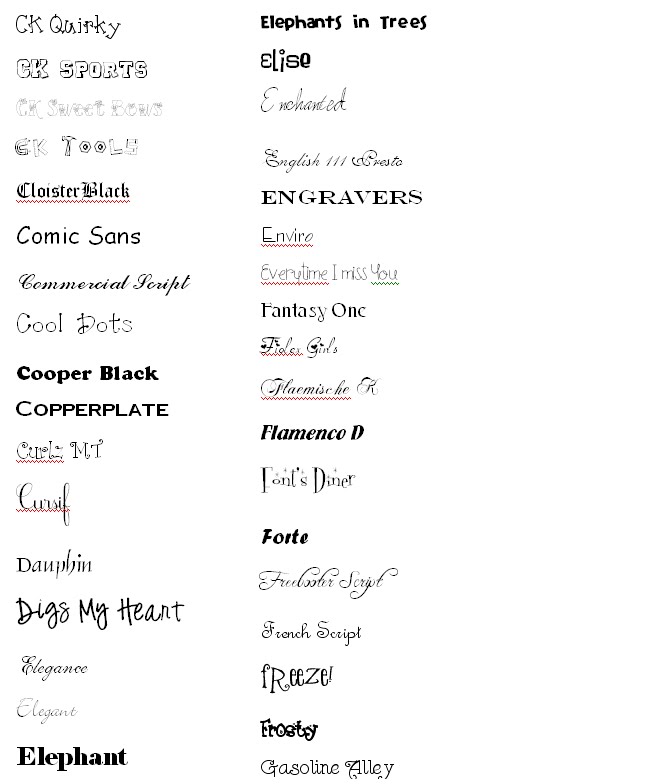 CK Quirky
CK SPORTS
CK Sweet Bows
CK TOOLS
CloisterBlack
Comic Sans
Commercial Script
Cool Dots
Cooper Black
COPPERPLATE
Curlz MT
Cursif
Dauphin
Digs My Heart
Elegance
Elegant
Elephant
Elephants in Trees
Elise
Enchanted
English 111 Presto
ENGRAVERS
Enviro
Everytime I miss You
Fantasy One
Fiolex Girls
Flaemische K
Flamenco D
Font's Diner
Forte
Freebooter Script
French Script
fREEZE!
Frosty
Gasoline Alley